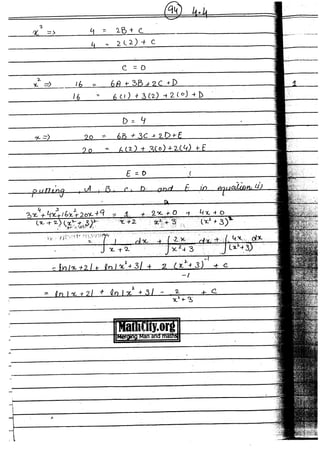 94 4.4
x² => 4 = 2B + C
4 = 2(2) + C
C = 0
x² => 16 = 6A + 3B + 2C + D
16 = 6(1) + 3(2) + 2(0) + D
D = 4
x => 20 = 6B + 3C + 2D + E
20 = 6(2) + 3(0) + 2(4) + E
E = 0
putting, A, B, C, D and E in equation (i)
3x⁴ + 4x³ + 16x² + 20x + 9 / (x + 2)(x² + 3)² = 1 / x + 2 + 2x + 0 / x² + 3 + 4x + 0 / (x² + 3)²
= ∫ 1 / x + 2 dx + ∫ 2x / x² + 3 dx + ∫ 4x / (x² + 3)² dx
= ln|x + 2| + ln|x² + 3| + 2 (x² + 3)⁻¹ / -1 + c
= ln|x + 2| + ln|x² + 3| - 2 / x² + 3 + C
MathCity.org
Merging Man and maths